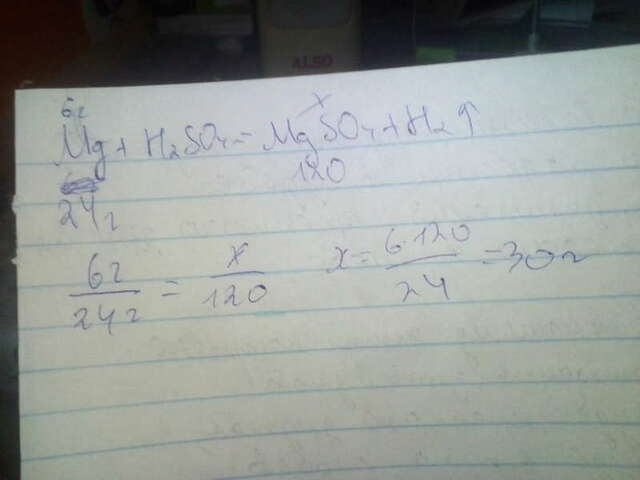 ALSO
6г x
Mg + H₂SO₄ = MgSO₄ + H₂↑
24г 120
6г/24г = x/120 x = 6·120/24 = 30г